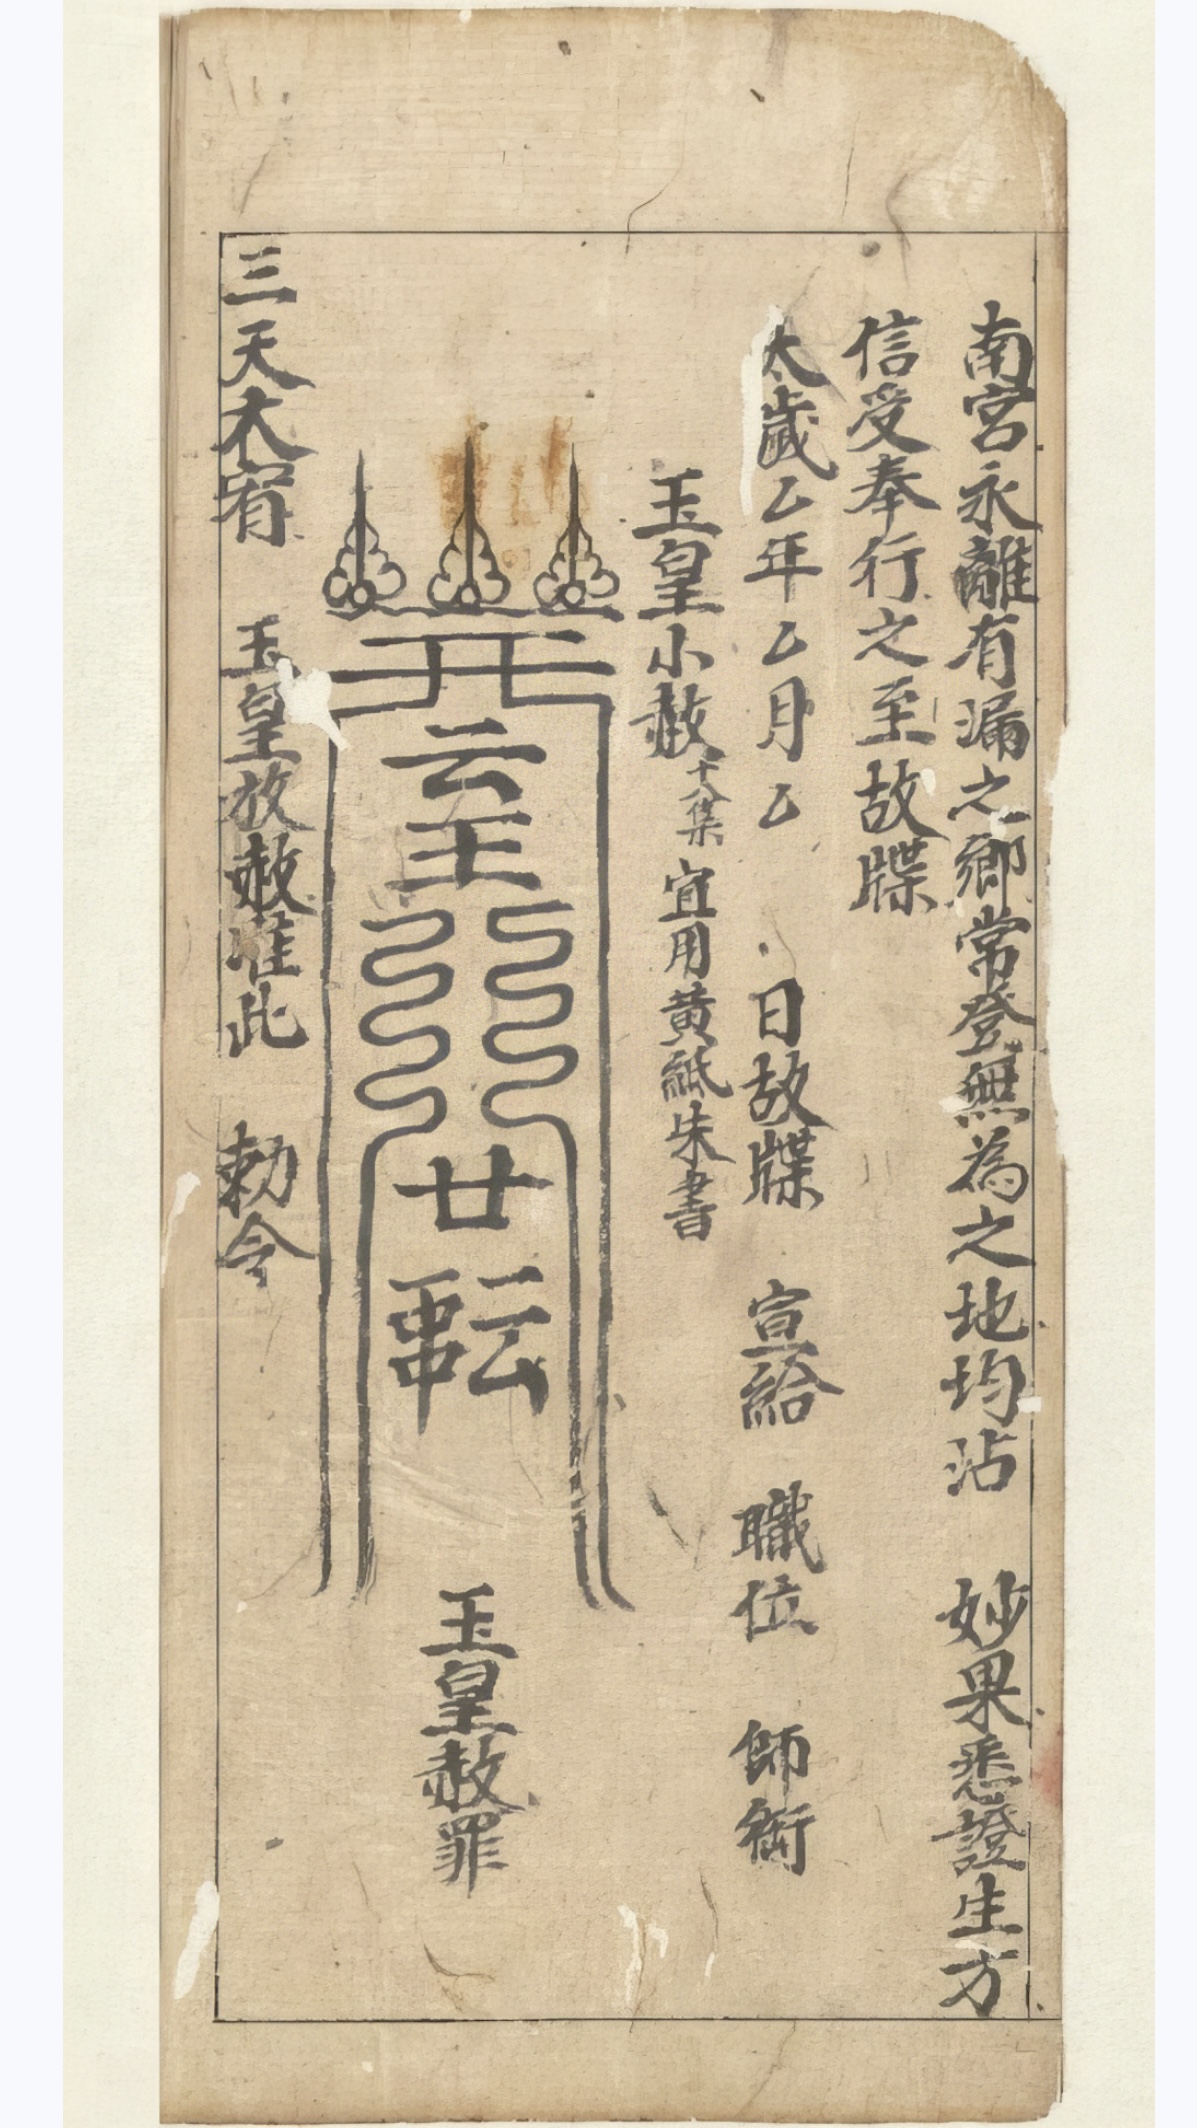 南宮永離有漏之鄉常登無為之地均沾 妙果悉證生方
信受奉行之至故牒
太歲乙年乙月乙 日故牒 宣給 職位 師銜
玉皇小赦 宜用黃紙朱書
云
廿
玉皇赦罪
三天大宥 玉皇放赦准此 勅令